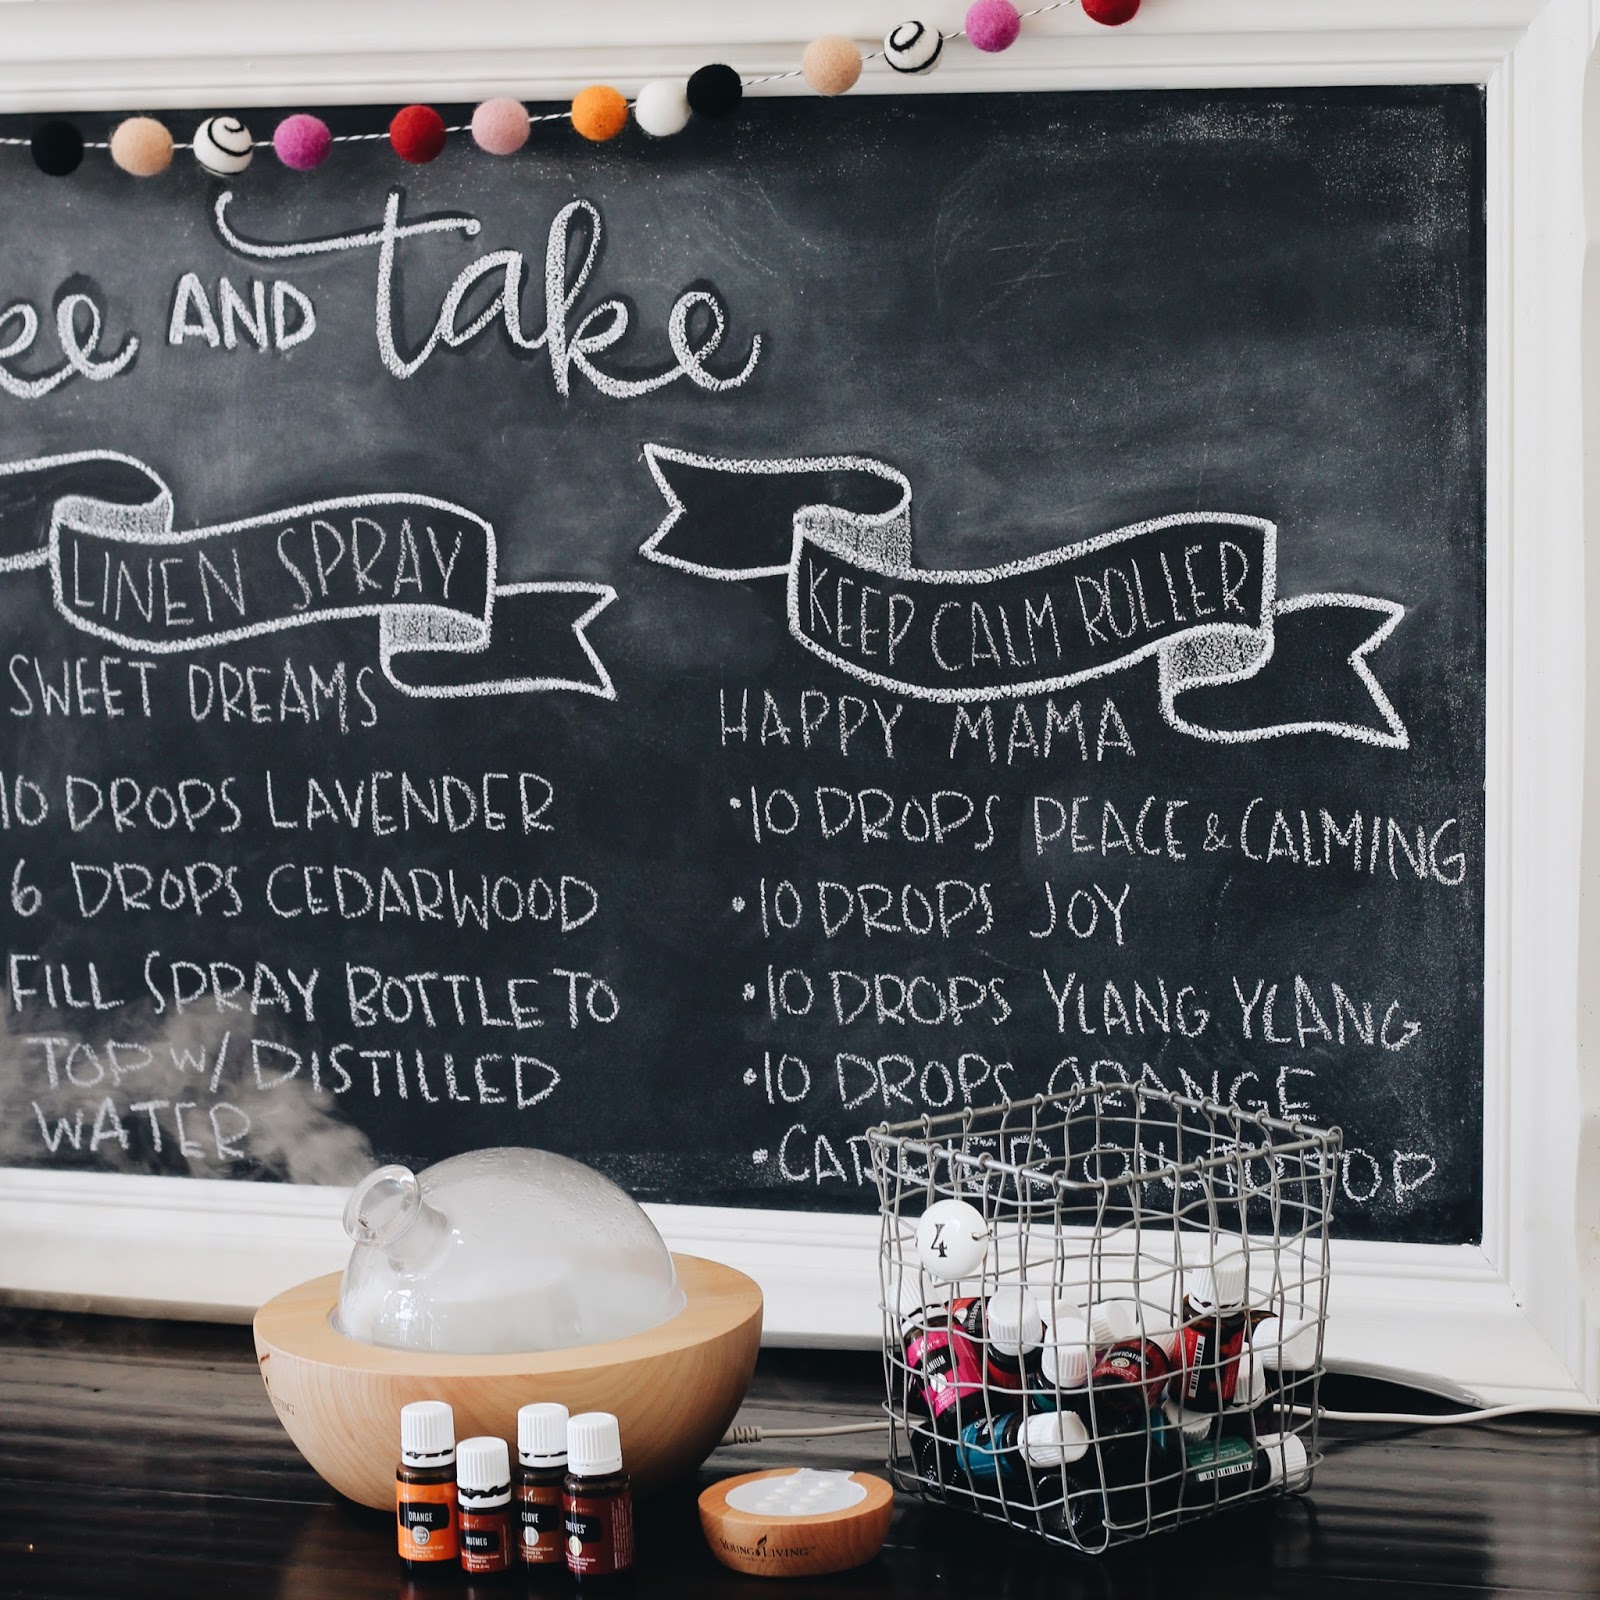 AND take
LINEN SPRAY
SWEET DREAMS
10 DROPS LAVENDER
6 DROPS CEDARWOOD
FILL SPRAY BOTTLE TO
TOP W/ DISTILLED
WATER
KEEP CALM ROLLER
HAPPY MAMA
•10 DROPS PEACE & CALMING
•10 DROPS JOY
•10 DROPS YLANG YLANG
•10 DROPS ORANGE
•CARRIER OIL TO TOP
4
ORANGE
NUTMEG
CLOVE
THIEVES
YOUNG LIVING